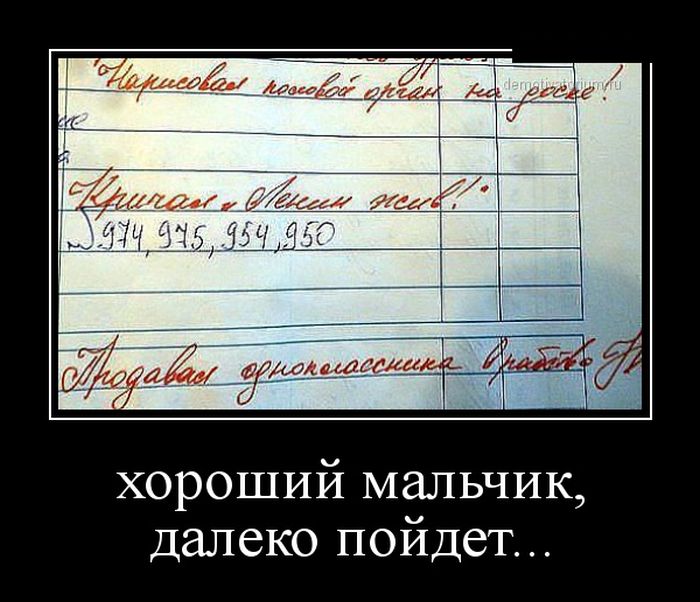 Нарисовал половой орган на доске!
demotivatorium.ru
ие
я
Кричал „Ленин жив!"
№ 974, 975, 954, 950
Продавал одноклассника в рабство
хороший мальчик,
далеко пойдет...